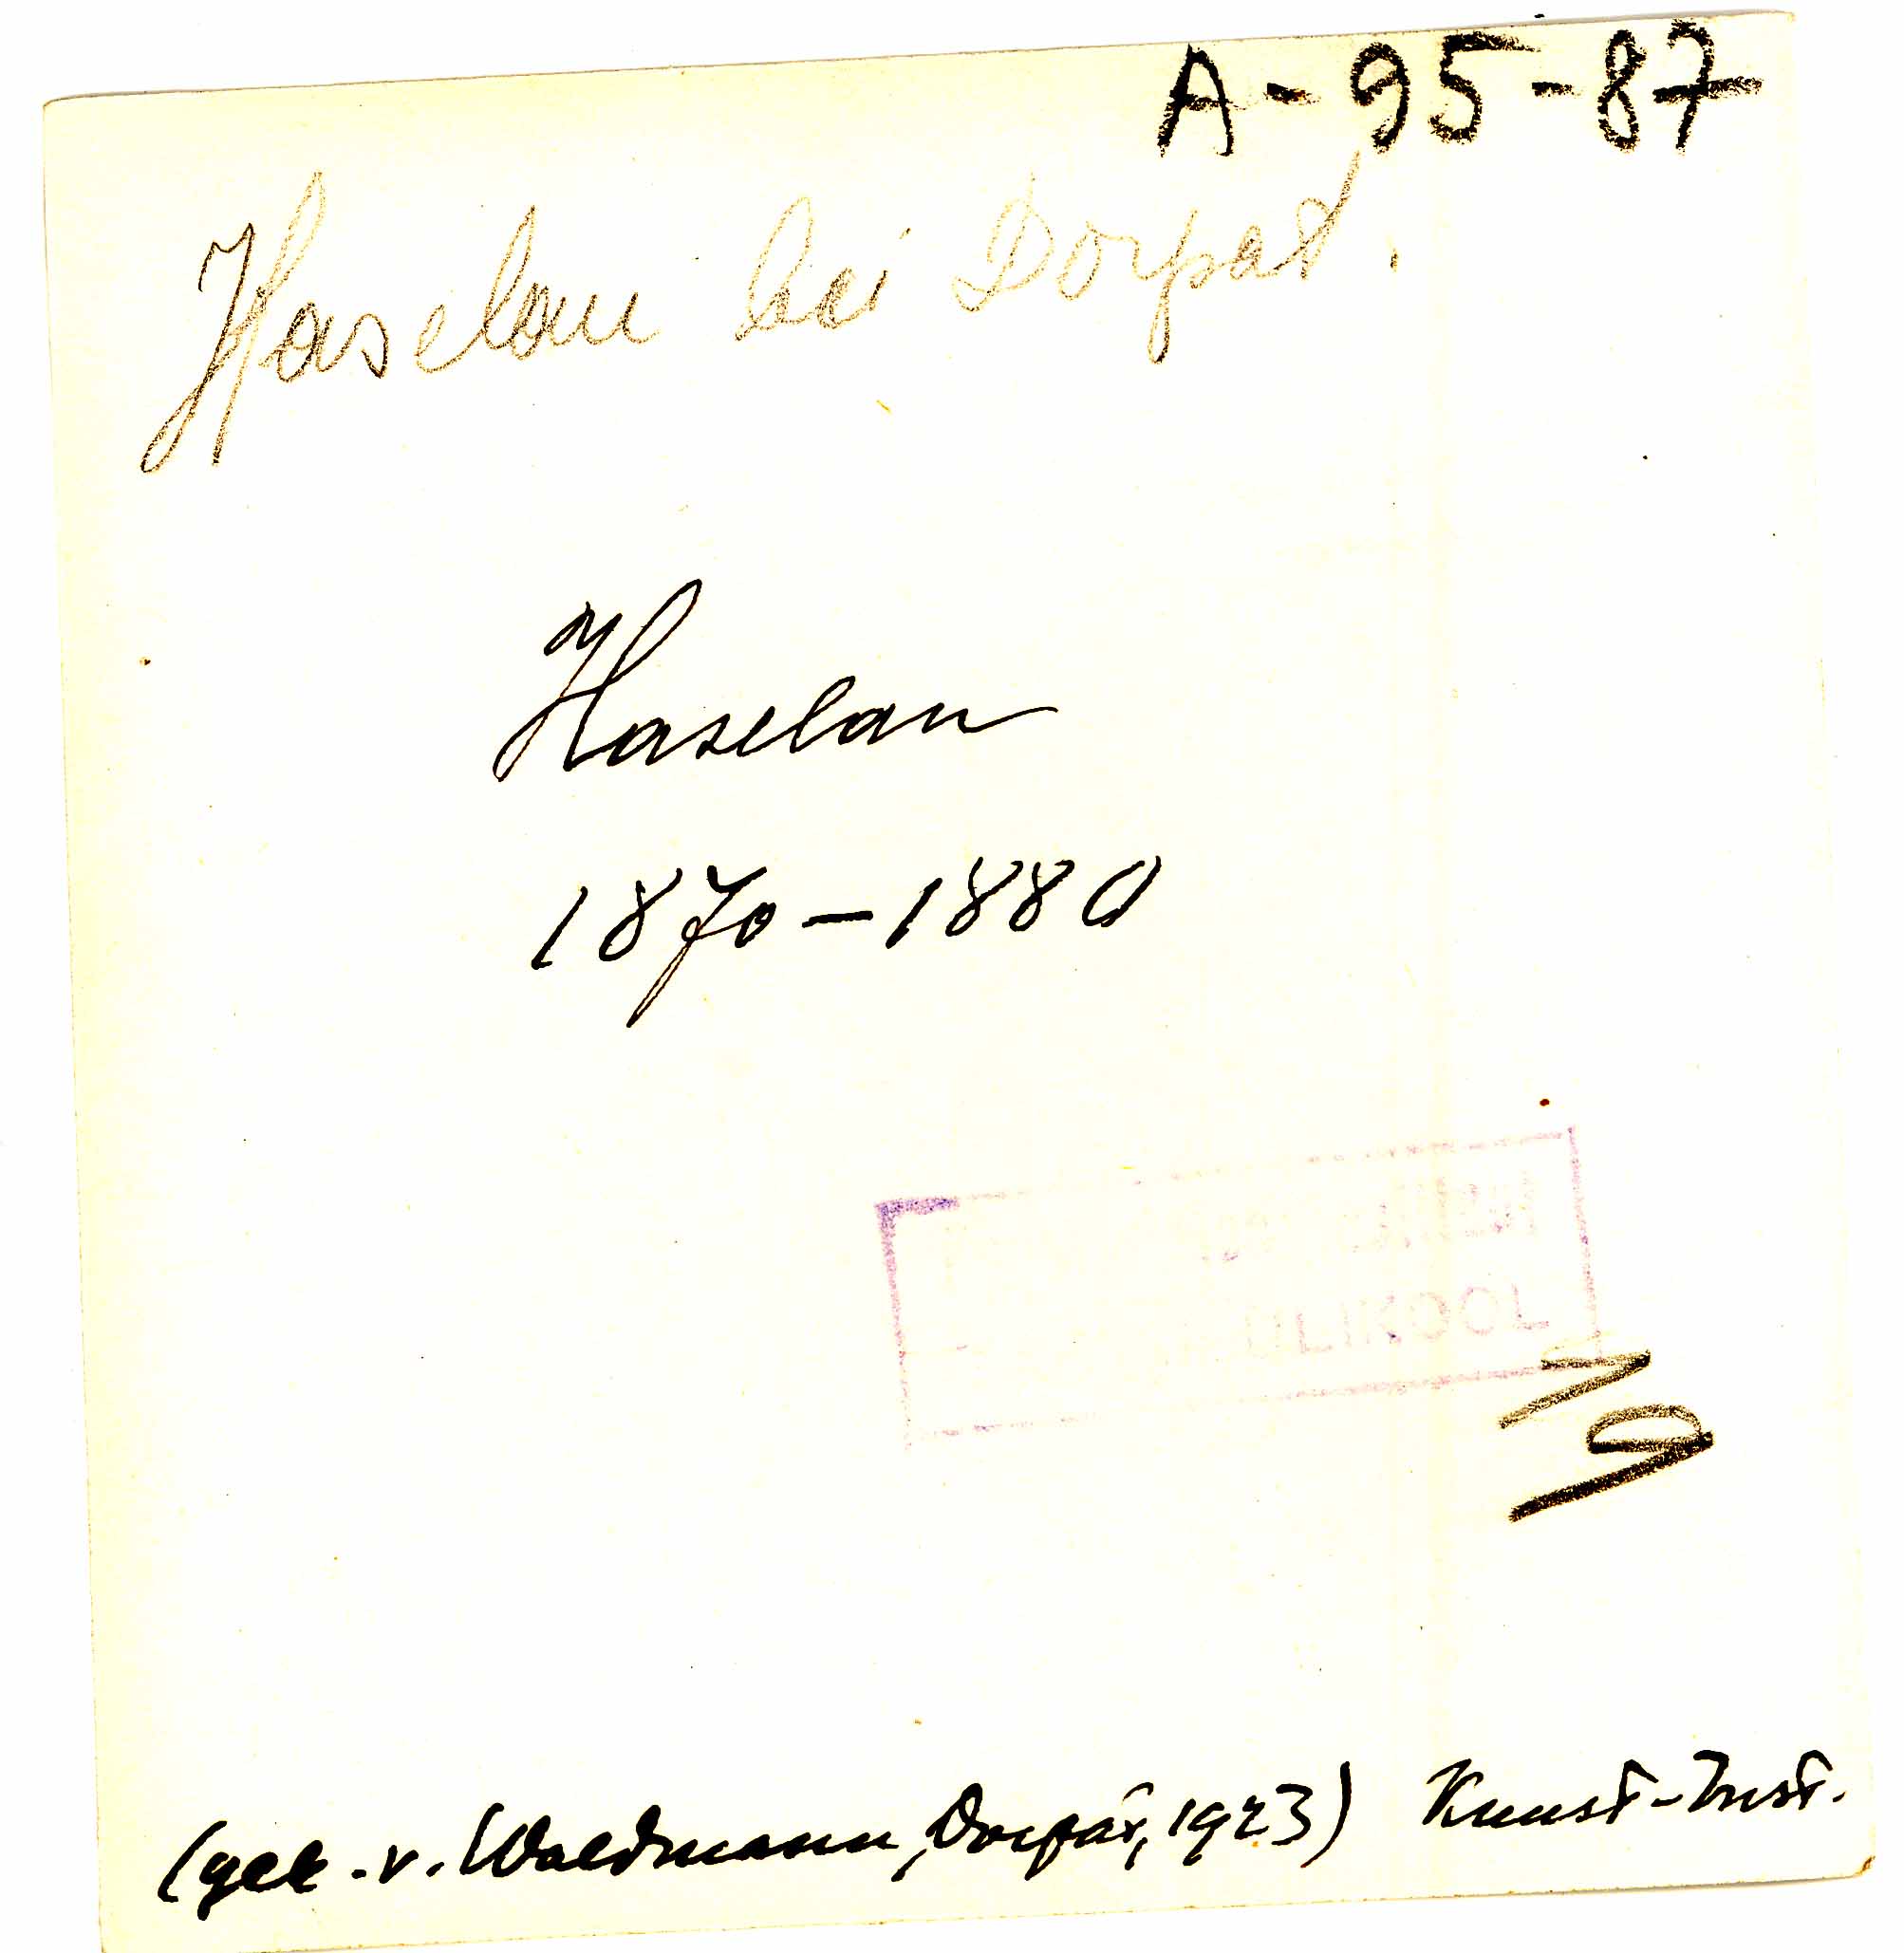 A-95-87
Haselau bei Dorpat.
Haselau
1870-1880
ÜLIKOOL
(gek. v. Waldmann, Dorpat, 1923) Kunst-Inst.